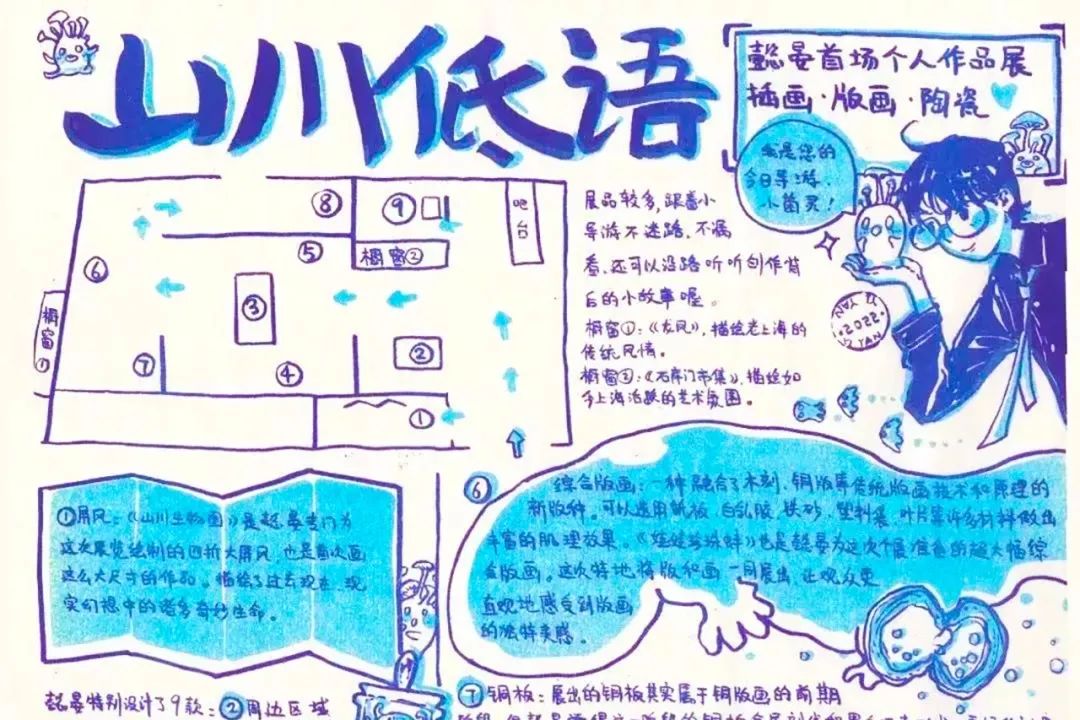 山川低语
懿晏首场个人作品展
插画·版画·陶瓷
我是您的
今日导游.
小菌灵!
展品较多,跟着小
导游不迷路、不漏
看、还可以沿路听听创作背
后的小故事喔。
橱窗①:《龙凤》,描绘老上海的
传统风情。
橱窗②:《石库门市集》,描绘如
今上海活跃的艺术氛围。
YI YAN
·2022·
⑧
⑨
吧台
橱窗②
⑤
⑥
③
橱窗①
②
⑦
④
①
①屏风:《山川生物图》是懿晏专门为
这次展览绘制的四折大屏风,也是首次画
这么大尺寸的作品。描绘了过去现在、现
实幻想中的诸多奇妙生命。
⑥ 综合版画:一种融合了木刻、铜版等传统版画技术和原理的
新版种。可以运用纸板、白乳胶、铁砂、塑料袋、叶片等许多材料做出
丰富的肌理效果。《娃娃珍珠蚌》也是懿晏为这次个展准备的超大幅综
合版画。这次特地将版和画一同展出,让观众更
直观地感受到版画
的独特灵感。
懿晏特别设计了9款:②周边区域
⑦铜板:展出的铜板其实属于铜版画的前期